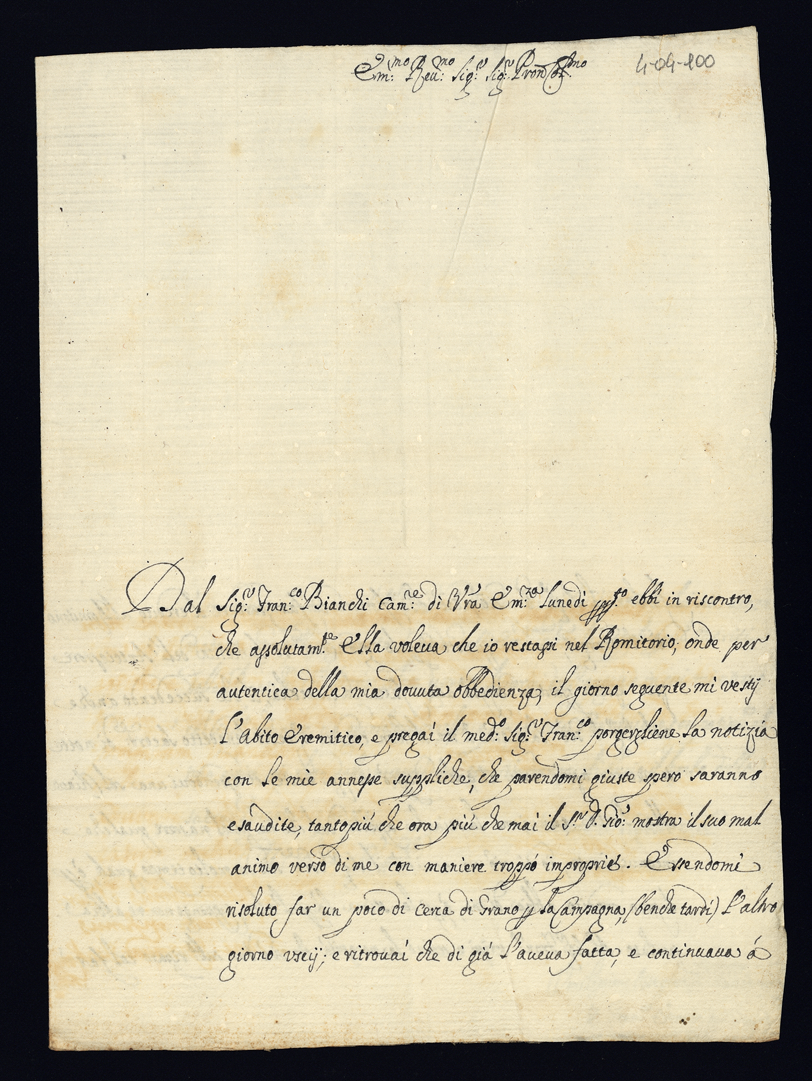 Em.mo Rev.mo Sig.r Sig.r Pron Col.mo
4-04-100
Dal Sig.r Fran.co Bianchi Cam.re di Vra Em.za lunedì pp.to ebbi in riscontro,
che assolutam.te Ella voleva che io restassi nel Romitorio, onde per
autentica della mia dovuta obbedienza, il giorno seguente mi vestij
l'Abito Eremitico, e pregai il med.o Sig.r Fran.co porgergliene la notizia
con le mie annesse suppliche, che parendomi giuste spero saranno
esaudite, tanto più che ora più che mai il S.r D. Gio: mostra il suo mal
animo verso di me con maniere troppo improprie. Essendomi
risoluto far un poco di cerca di Grano p la Campagna, (benche tardi) l'altro
giorno uscij; e ritrovai che di già l'aveva fatta, e continuava á